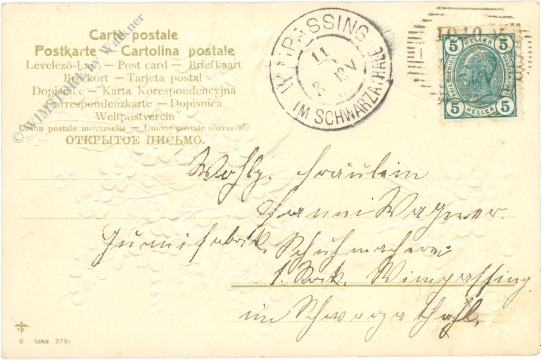 Carte postale
Postkarte — Cartolina postale
Levelező-Lap — Post card — Briefkaart
Brefkort — Tarjeta postal
Dopisnice — Karta Korespondencyjna
Korrespondenzkarte — Dopisnica
Weltpostverein
Union postale universelle — Unione postale universale
ОТКРЫТОЕ ПИСЬМО.
© WIMSport by Wallner
WIMPASSING
11
IM SCHWARZATHALE
5 5
HELLER HELLER
5 5
Wohlg. Fräulein
Hanni Wagner
Gumifabrik. Schuhmacherei
1. Stock. Wimpassing
im Schwarzathal.
SERIE 375